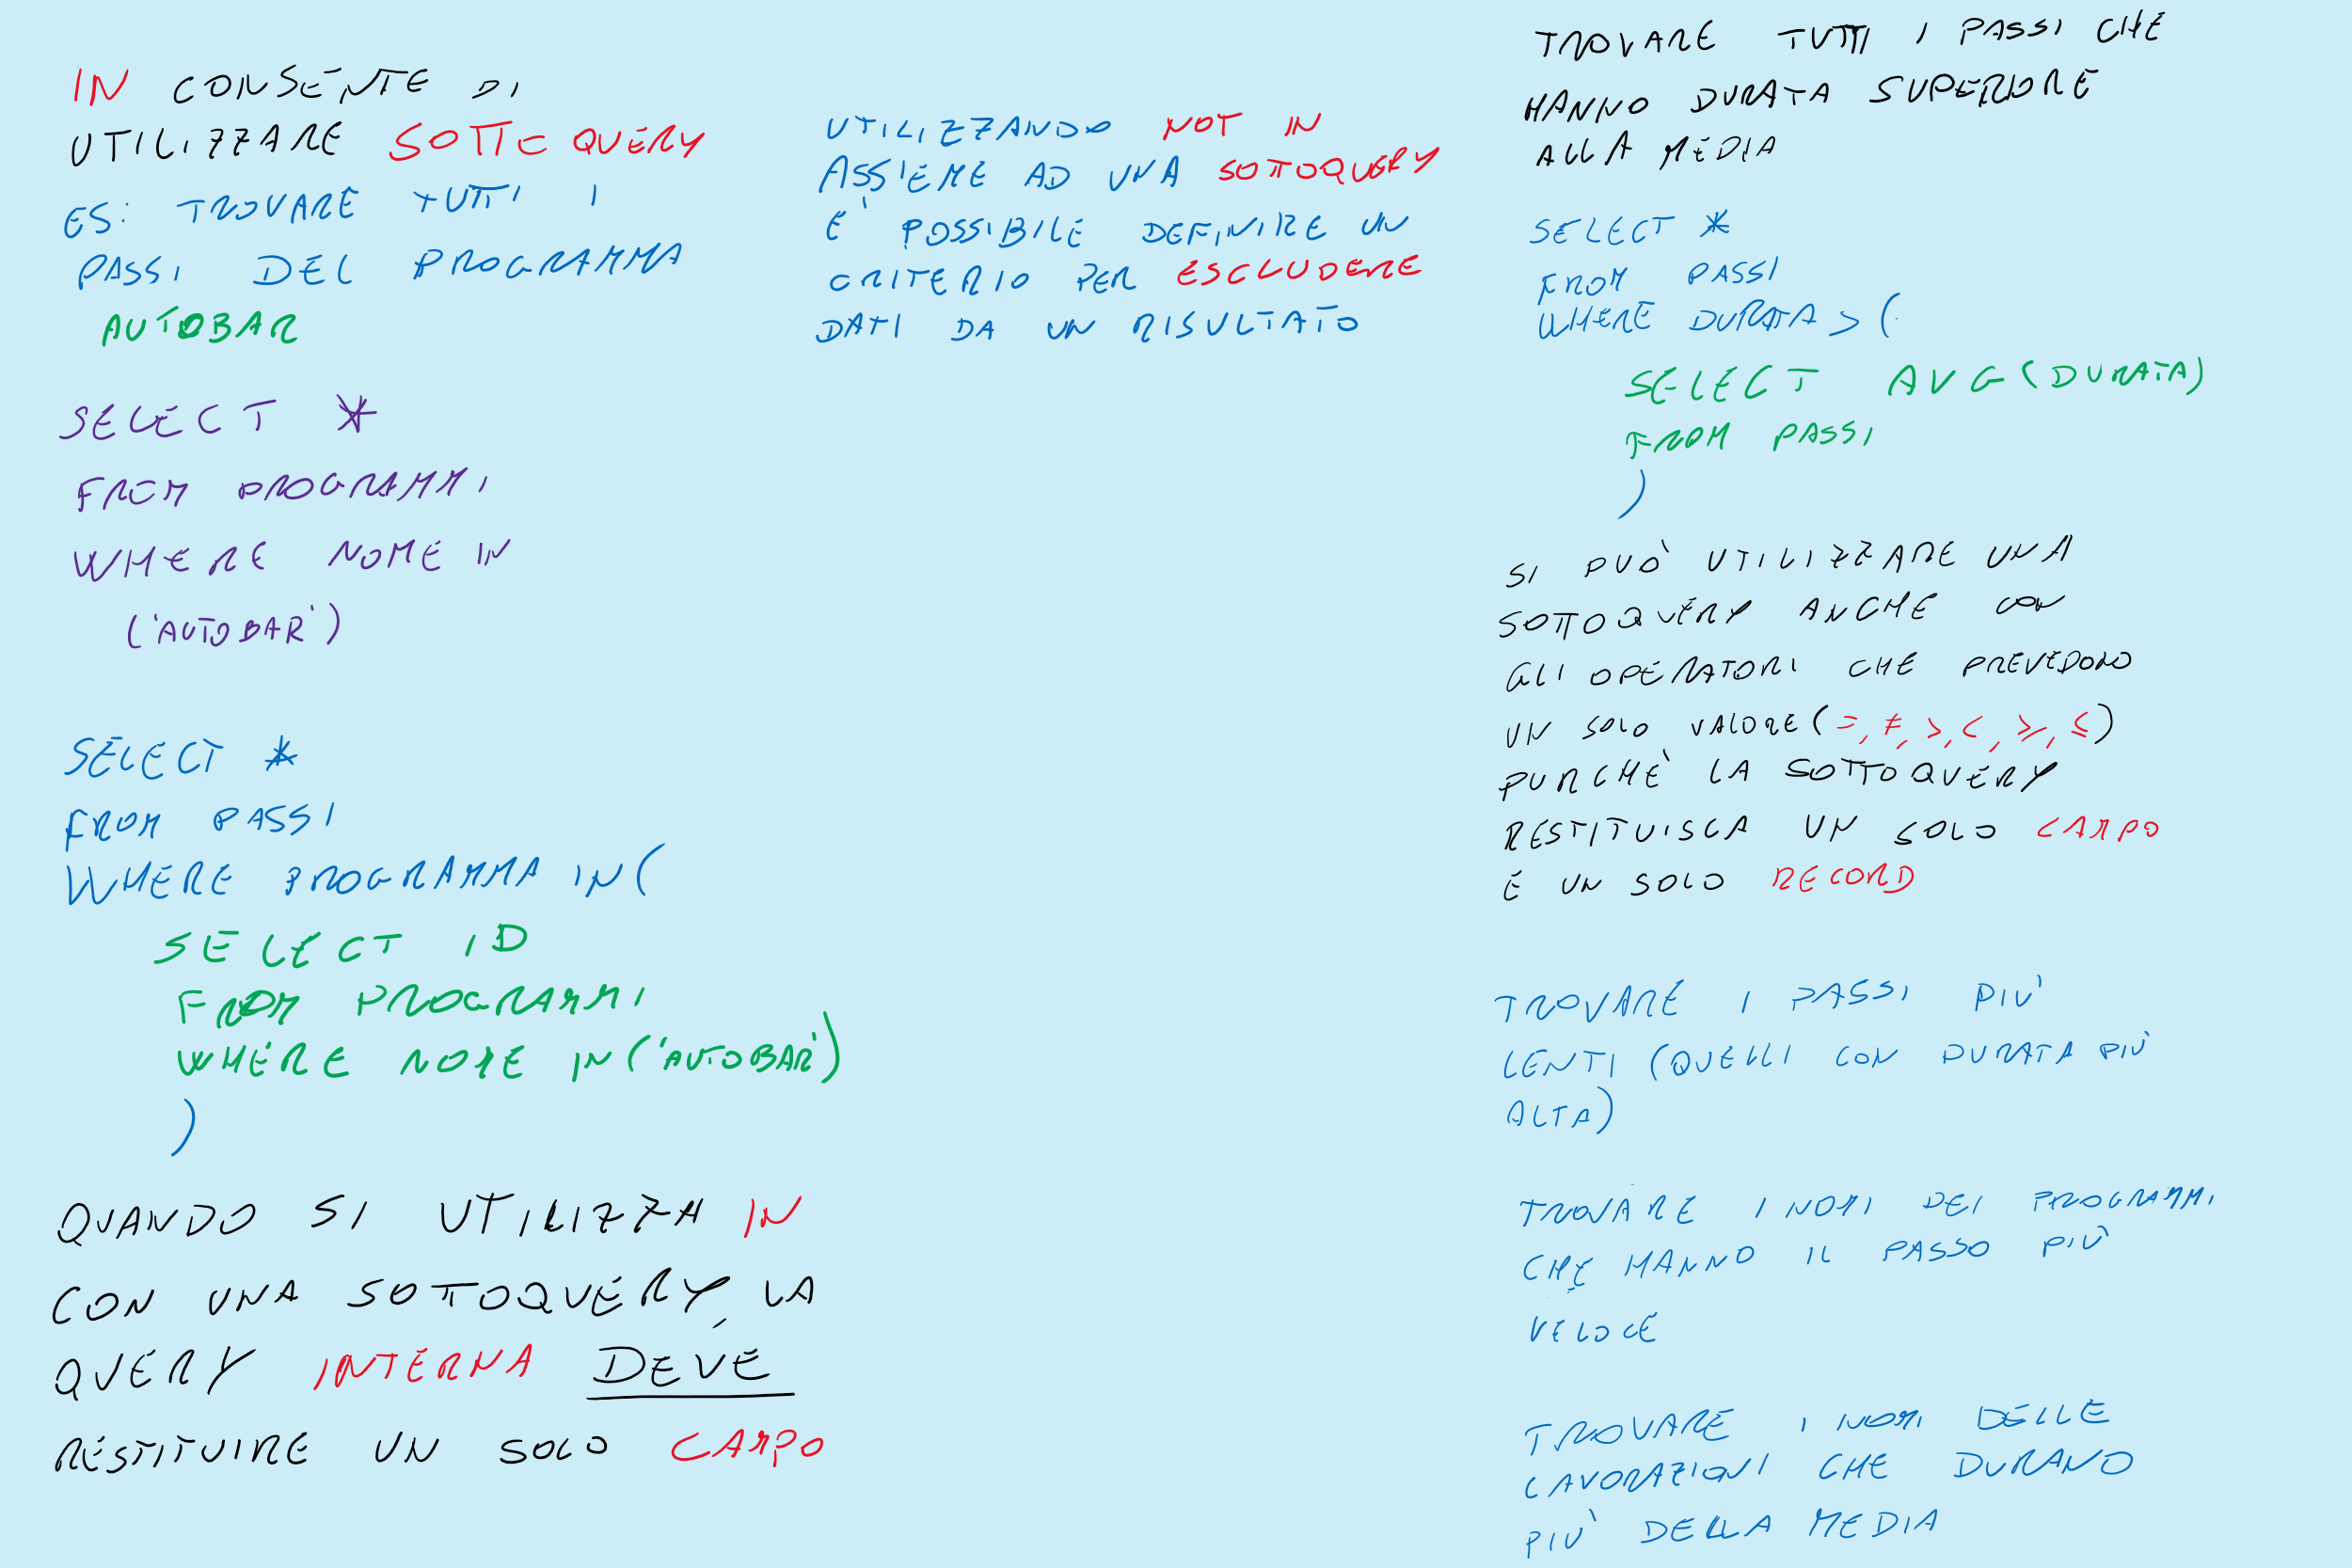 IN CONSENTE DI
UTILIZZARE SOTTOQUERY
ES: TROVARE TUTTI I
PASSI DEL PROGRAMMA
AUTOBAR
SELECT *
FROM PROGRAMMI
WHERE NOME IN
('AUTOBAR')
SELECT *
FROM PASSI
WHERE PROGRAMMA IN(
SELECT ID
FROM PROGRAMMI
WHERE NOME IN('AUTOBAR')
)
QUANDO SI UTILIZZA IN
CON UNA SOTTOQUERY, LA
QUERY INTERNA DEVE
RESTITUIRE UN SOLO CAMPO
UTILIZZANDO NOT IN
ASSIEME AD UNA SOTTOQUERY
E' POSSIBILE DEFINIRE UN
CRITERIO PER ESCLUDERE
DATI DA UN RISULTATO
TROVARE TUTTI I PASSI CHE
HANNO DURATA SUPERIORE
ALLA MEDIA
SELECT *
FROM PASSI
WHERE DURATA > (
SELECT AVG(DURATA)
FROM PASSI
)
SI PUÒ UTILIZZARE UNA
SOTTOQUERY ANCHE CON
GLI OPERATORI CHE PREVEDONO
UN SOLO VALORE (=, ≠, >, <, ≥, ≤)
PURCHÈ LA SOTTOQUERY
RESTITUISCA UN SOLO CAMPO
E UN SOLO RECORD
TROVARE I PASSI PIU'
LENTI (QUELLI CON DURATA PIÙ
ALTA)
TROVARE I NOMI DEI PROGRAMMI
CHE HANNO IL PASSO PIÙ
VELOCE
TROVARE I NOMI DELLE
LAVORAZIONI CHE DURANO
PIU' DELLA MEDIA